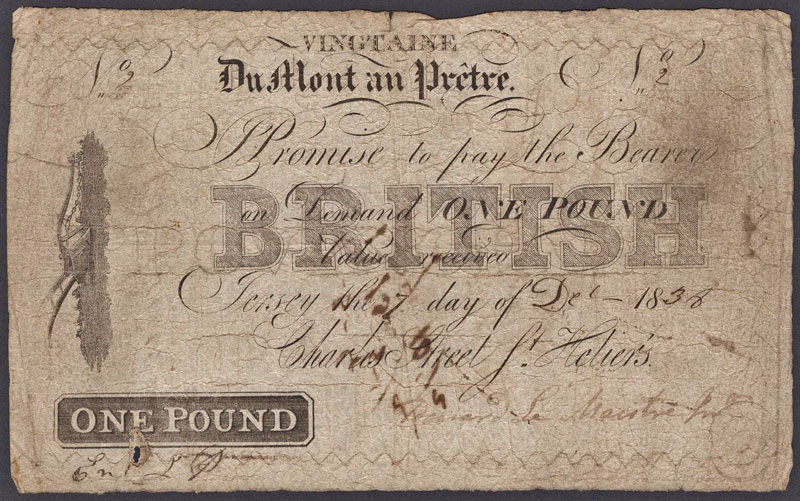 VINGTAINE
Du Mont au Prêtre.
No 2 No 2
I Promise to pay the Bearer
on Demand ONE POUND
BRITISH
Value received
Jersey the 27 day of Dec 1838
Charles Street St. Helier's.
ONE POUND
Le Maistre
Ent